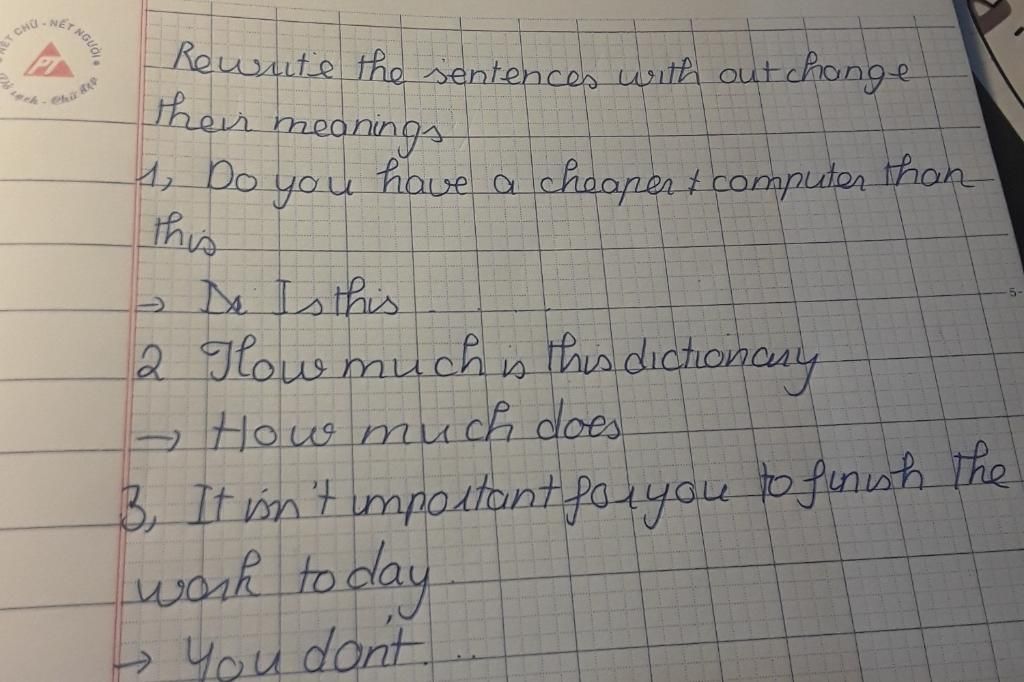 NÉT CHỮ - NẾT NGƯỜI
PT
Rewrite the sentences with out change
their meanings
1, Do you have a cheaper computer than
this
→ Is this
5-
2 How much is this dictionary
→ How much does
3, It isn't important for you to finish the
work today
→ You don't...